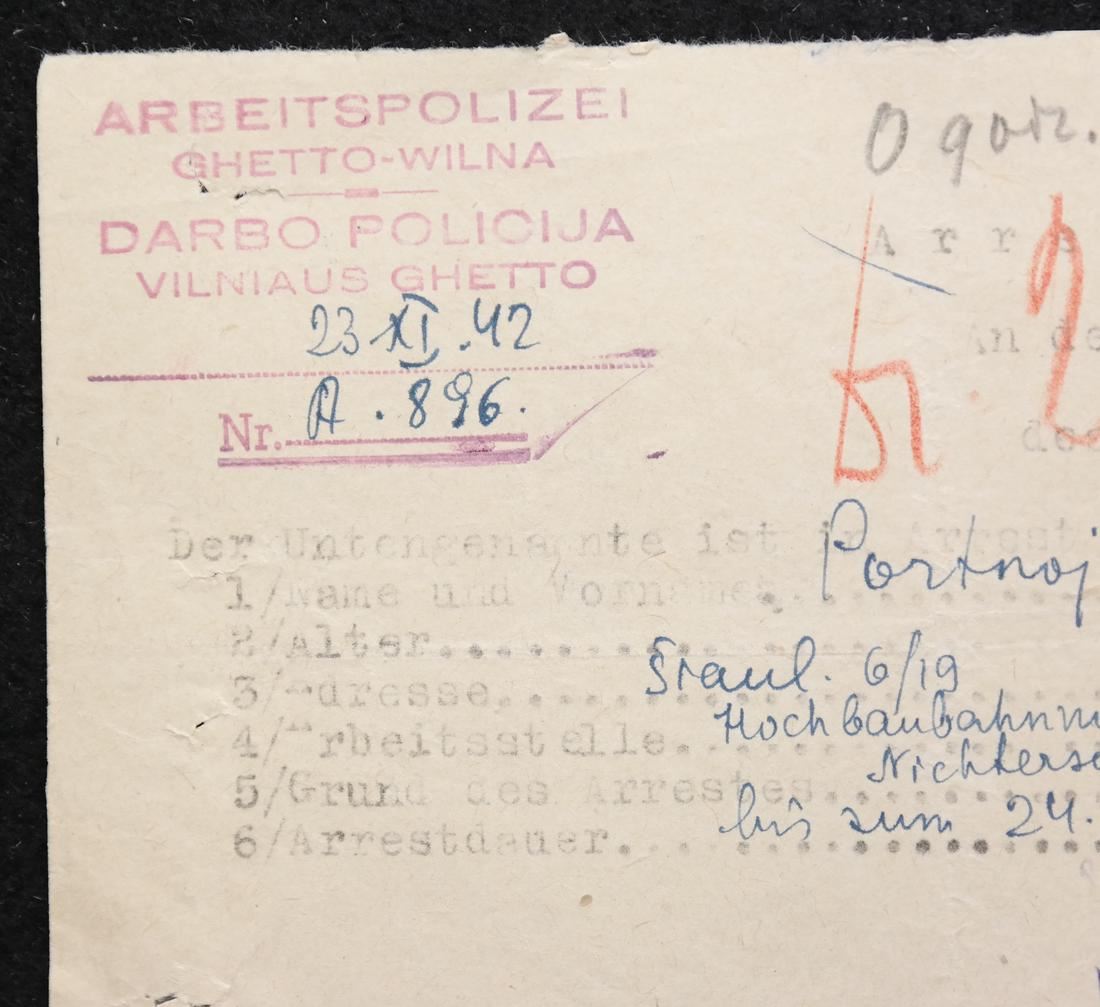 ARBEITSPOLIZEI
GHETTO-WILNA
DARBO POLICIJA
VILNIAUS GHETTO
23 XI.42
Nr. A. 896.
0 godz.
Arres
An de
des
Der Untengenannte ist in Arrest
1/Name und Vorname, Portnoj
2/Alter
3/Adresse, Straul. 6/19
4/Arbeitsstelle. Hochbaubahnm
5/Grund des Arrestes Nichtersc
6/Arrestdauer. bis zum 24.